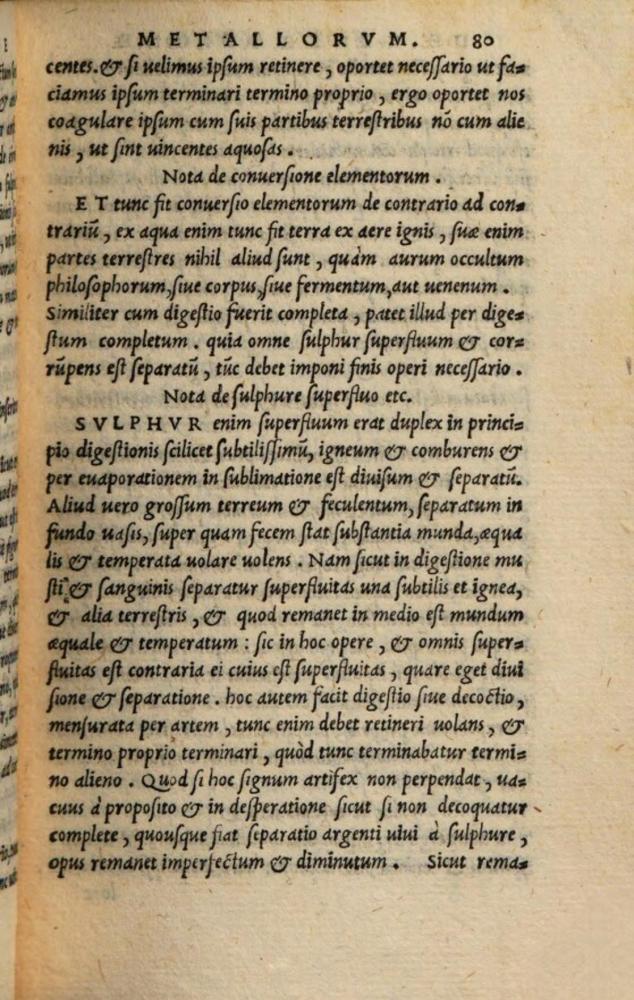 METALLORVM. 80
centes. & ſi uelimus ipſum retinere, oportet neceſſario ut fa-
ciamus ipſum terminari termino proprio, ergo oportet nos
coagulare ipſum cum ſuis partibus terreſtribus nõ cum alie
nis, ut ſint uincentes aquoſas.
Nota de conuerſione elementorum.
ET tunc fit conuerſio elementorum de contrario ad con-
trariũ, ex aqua enim tunc fit terra ex aere ignis, ſuæ enim
partes terreſtres nihil aliud ſunt, quàm aurum occultum
philoſophorum, ſiue corpus, ſiue fermentum, aut uenenum.
Similiter cum digeſtio fuerit completa, patet illud per dige-
ſtum completum. quia omne ſulphur ſuperfluum & cor-
rũpens eſt ſeparatũ, tũc debet imponi finis operi neceſſario.
Nota de ſulphure ſuperfluo etc.
SVLPHVR enim ſuperfluum erat duplex in princi-
pio digeſtionis ſcilicet ſubtiliſſimũ, igneum & comburens &
per euaporationem in ſublimatione eſt diuiſum & ſeparatũ.
Aliud uero groſſum terreum & feculentum, ſeparatum in
fundo uaſis, ſuper quam fecem ſtat ſubſtantia munda, æqua
lis & temperata uolare uolens. Nam ſicut in digeſtione mu
ſti, & ſanguinis ſeparatur ſuperfluitas una ſubtilis et ignea,
& alia terreſtris, & quod remanet in medio eſt mundum
æquale & temperatum: ſic in hoc opere, & omnis ſuper-
fluitas eſt contraria ei cuius eſt ſuperfluitas, quare eget diui
ſione & ſeparatione. hoc autem facit digeſtio ſiue decoctio,
menſurata per artem, tunc enim debet retineri uolans, &
termino proprio terminari, quòd tunc terminabatur termi-
no alieno. Quod ſi hoc ſignum artifex non perpendat, ua-
cuus à propoſito & in deſperatione ſicut ſi non decoquatur
complete, quouſque fiat ſeparatio argenti uiui à ſulphure,
opus remanet imperfectum & diminutum. Sicut rema-